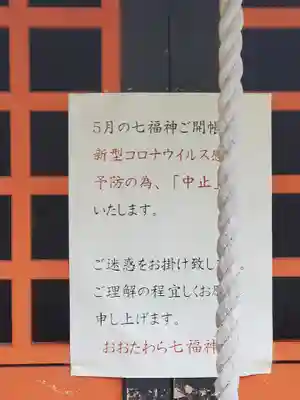 5月の七福神ご開帳
新型コロナウイルス感
予防の為、「中止」
いたします。
ご迷惑をお掛け致し
ご理解の程宜しくお
申し上げます。
おおたわら七福神